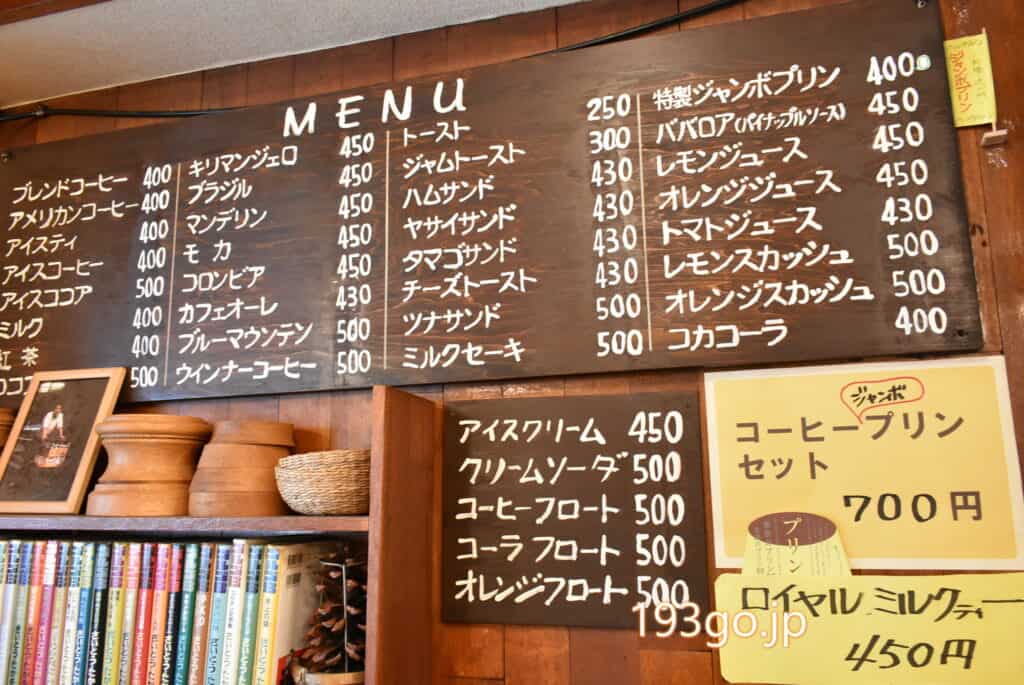 MENU
ブレンドコーヒー 400
アメリカンコーヒー 400
アイスティ 400
アイスコーヒー 400
アイスココア 500
ミルク 400
紅茶 400
ココア 500
キリマンジェロ 450
ブラジル 450
マンデリン 450
モカ 450
コロンビア 450
カフェオーレ 430
ブルーマウンテン 500
ウインナーコーヒー 500
トースト 250
ジャムトースト 300
ハムサンド 430
ヤサイサンド 430
タマゴサンド 430
チーズトースト 430
ツナサンド 500
ミルクセーキ 500
特製ジャンボプリン 400
ババロア(パイナップルソース) 450
レモンジュース 450
オレンジジュース 450
トマトジュース 430
レモンスカッシュ 500
オレンジスカッシュ 500
コカコーラ 400
ジャンボプリン
アイスクリーム 450
クリームソーダ 500
コーヒーフロート 500
コーラフロート 500
オレンジフロート 500
ジャンボ
コーヒープリン
セット
700円
プリン
ロイヤルミルクティー
450円
193go.jp